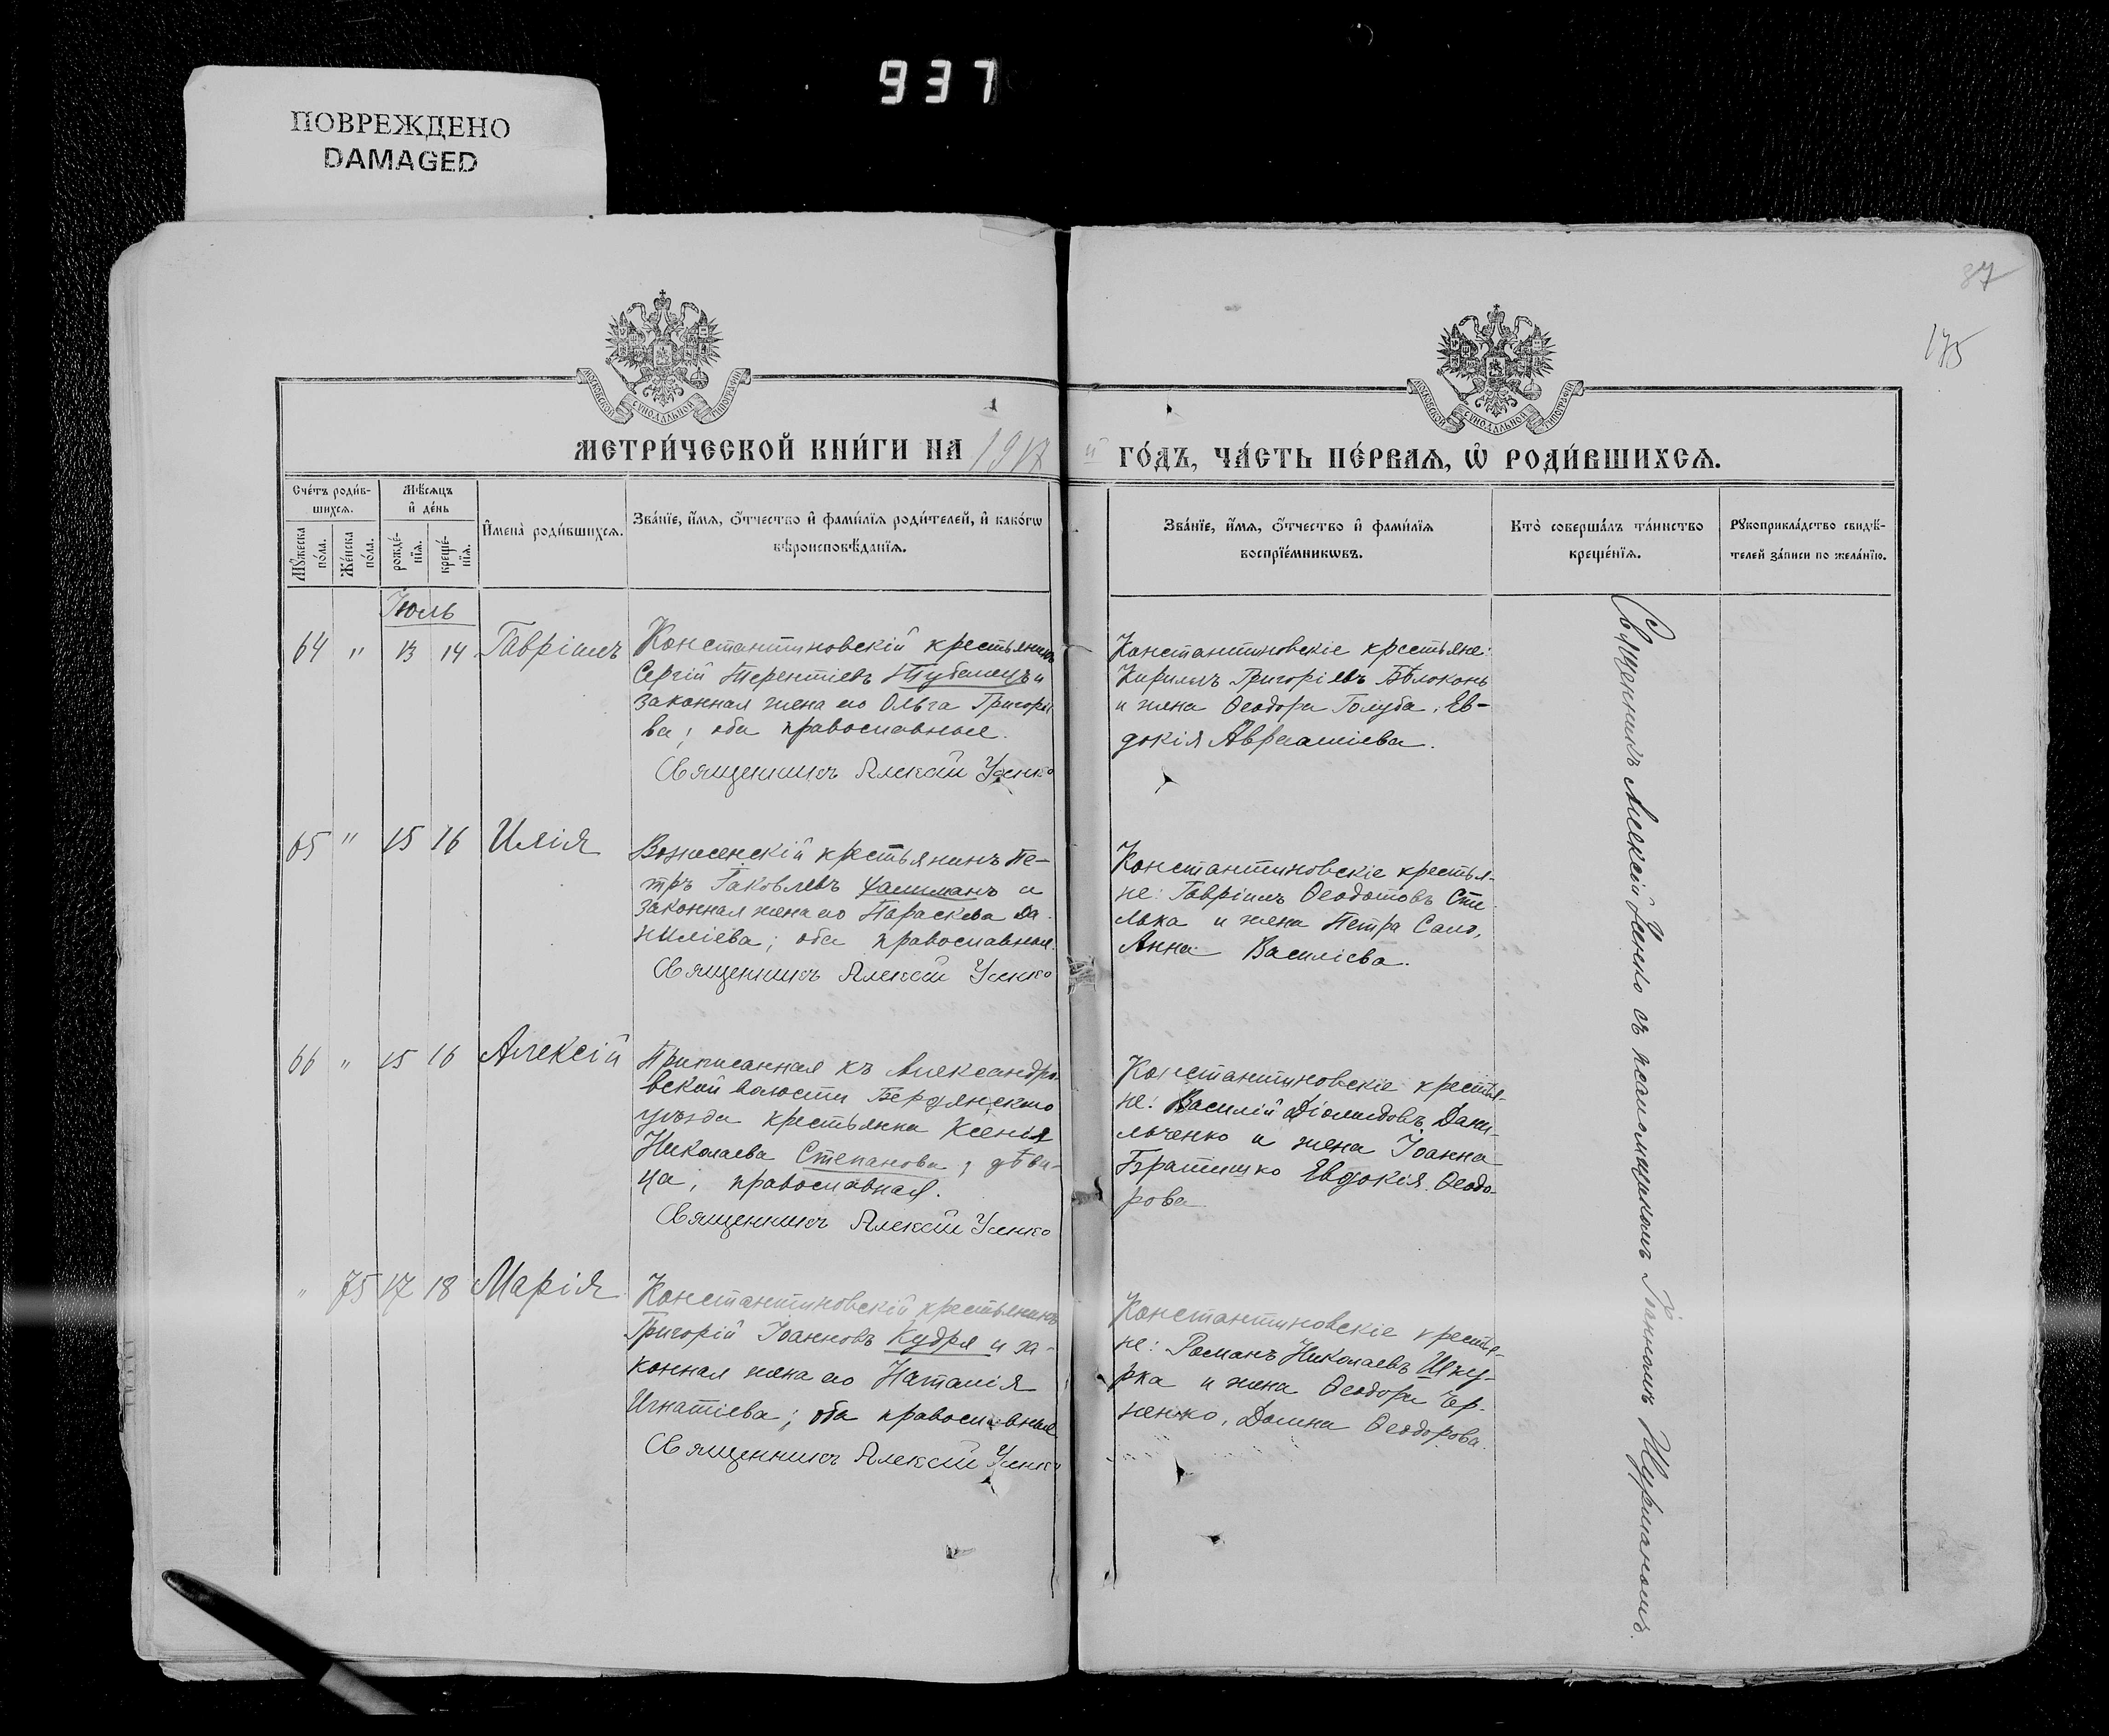 937
ПОВРЕЖДЕНО
DAMAGED
87
175
МОСКОВСКОЙ СУНОДАЛЬНОЙ ТИПОГРАФІИ
МОСКОВСКОЙ СУНОДАЛЬНОЙ ТИПОГРАФІИ
МЕТРИ́ЧЕСКОЙ КНИ́ГИ НА 1917
й ГО́ДЪ, ЧА́СТЬ ПЕ́РВАѦ, Ѡ҆ РОДИ́ВШИХСѦ.
Сче́тъ роди́в-
шихсѧ.
Мꙋ́жеска по́ла.
Же́нска по́ла.
Мѣ́сѧцъ
и҆ де́нь
рожде́-
нїѧ.
креще́-
нїѧ.
И҆мена̀ роди́вшихсѧ.
Зва́нїе, и҆́мѧ, ѻ҆́тчество и҆ фами́лїѧ роди́телей, и҆ како́гѡ
вѣроисповѣ́данїѧ.
Зва́нїе, и҆́мѧ, ѻ҆́тчество и҆ фами́лїѧ
воспрїе́мникѡвъ.
Кто̀ соверша́лъ та́инство
креще́нїѧ.
Рꙋкоприкла́дство свидѣ́-
телей за́писи по жела́нїю.
Іюль
64 " 13 14 Гавріилъ
Константиновскій крестьянинъ
Сергій Терентіевъ и
законная жена его Ольга Григоріе
ва; оба православные.
Священникъ Алексій Усенко
Константиновскіе крестьяне:
Кириллъ Григоріевъ Бѣлоконь
и жена Ѳеодора Голуба, Ев-
докія Авраміева.
65 " 15 16 Илія
Вознесенскій крестьянинъ Пе-
тръ Іаковлевъ и
законная жена его Параскева Да-
ниліева; оба православные.
Священникъ Алексій Усенко
Константиновскіе крестья-
не: Гавріилъ Ѳеодотовъ
и жена Петра
Анна Василіева.
66 " 15 16 Алексій
Приписанная къ Александро-
вской волости Бердянскаго
уѣзда крестьянка Ксенія
Николаева Степанова, дѣви-
ца, православная.
Священникъ Алексій Усенко
Константиновскіе крестья-
не: Василій Діомидовъ Дани-
льченко и жена Іоанна
Братишко Евдокія Ѳеодо-
рова
" 75 17 18 Марія
Константиновскій крестьянинъ
Григорій Іоанновъ Кудря и за-
конная жена его Наталія
Игнатіева; оба православные
Священникъ Алексій Усенко
Константиновскіе крестья-
не: Романъ Николаевъ Шку-
рка и жена Ѳеодора Чер-
ненко, Домна Ѳеодорова.
Священникъ Алексій Усенко съ псаломщикомъ Іоанномъ